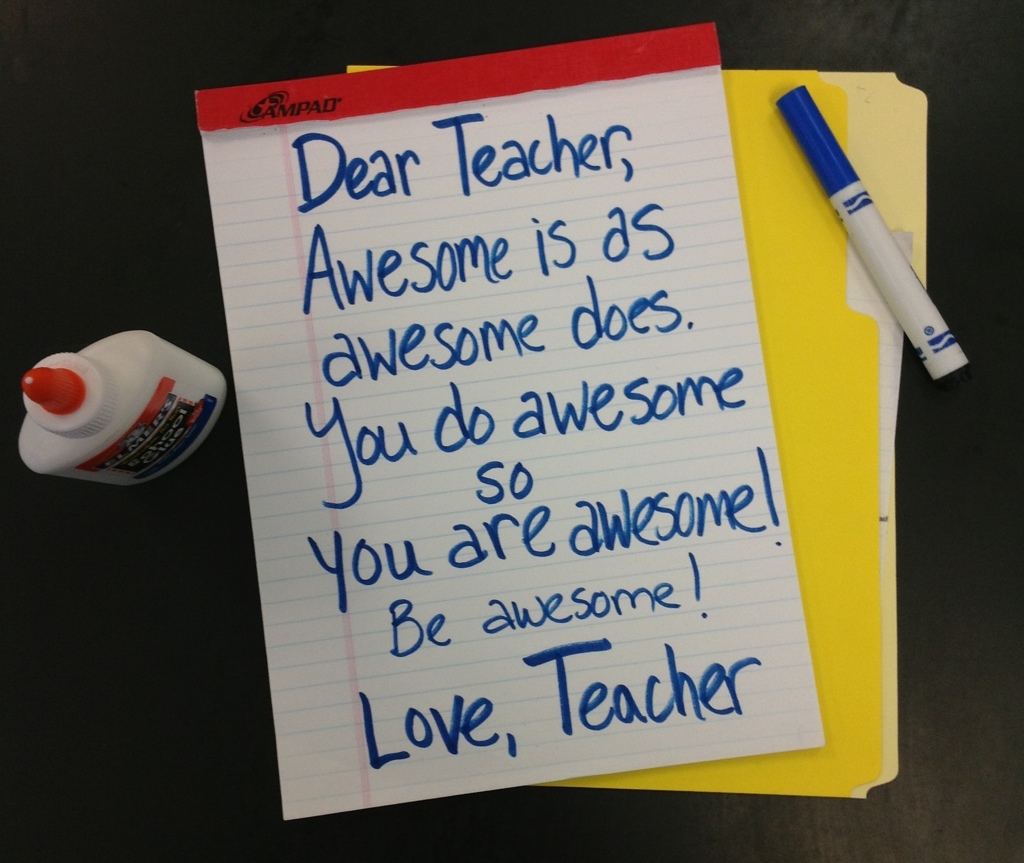 AMPAD
Dear Teacher,
Awesome is as
awesome does.
You do awesome
so
you are awesome!
Be awesome!
Love, Teacher
ELMER'S
School
Glue